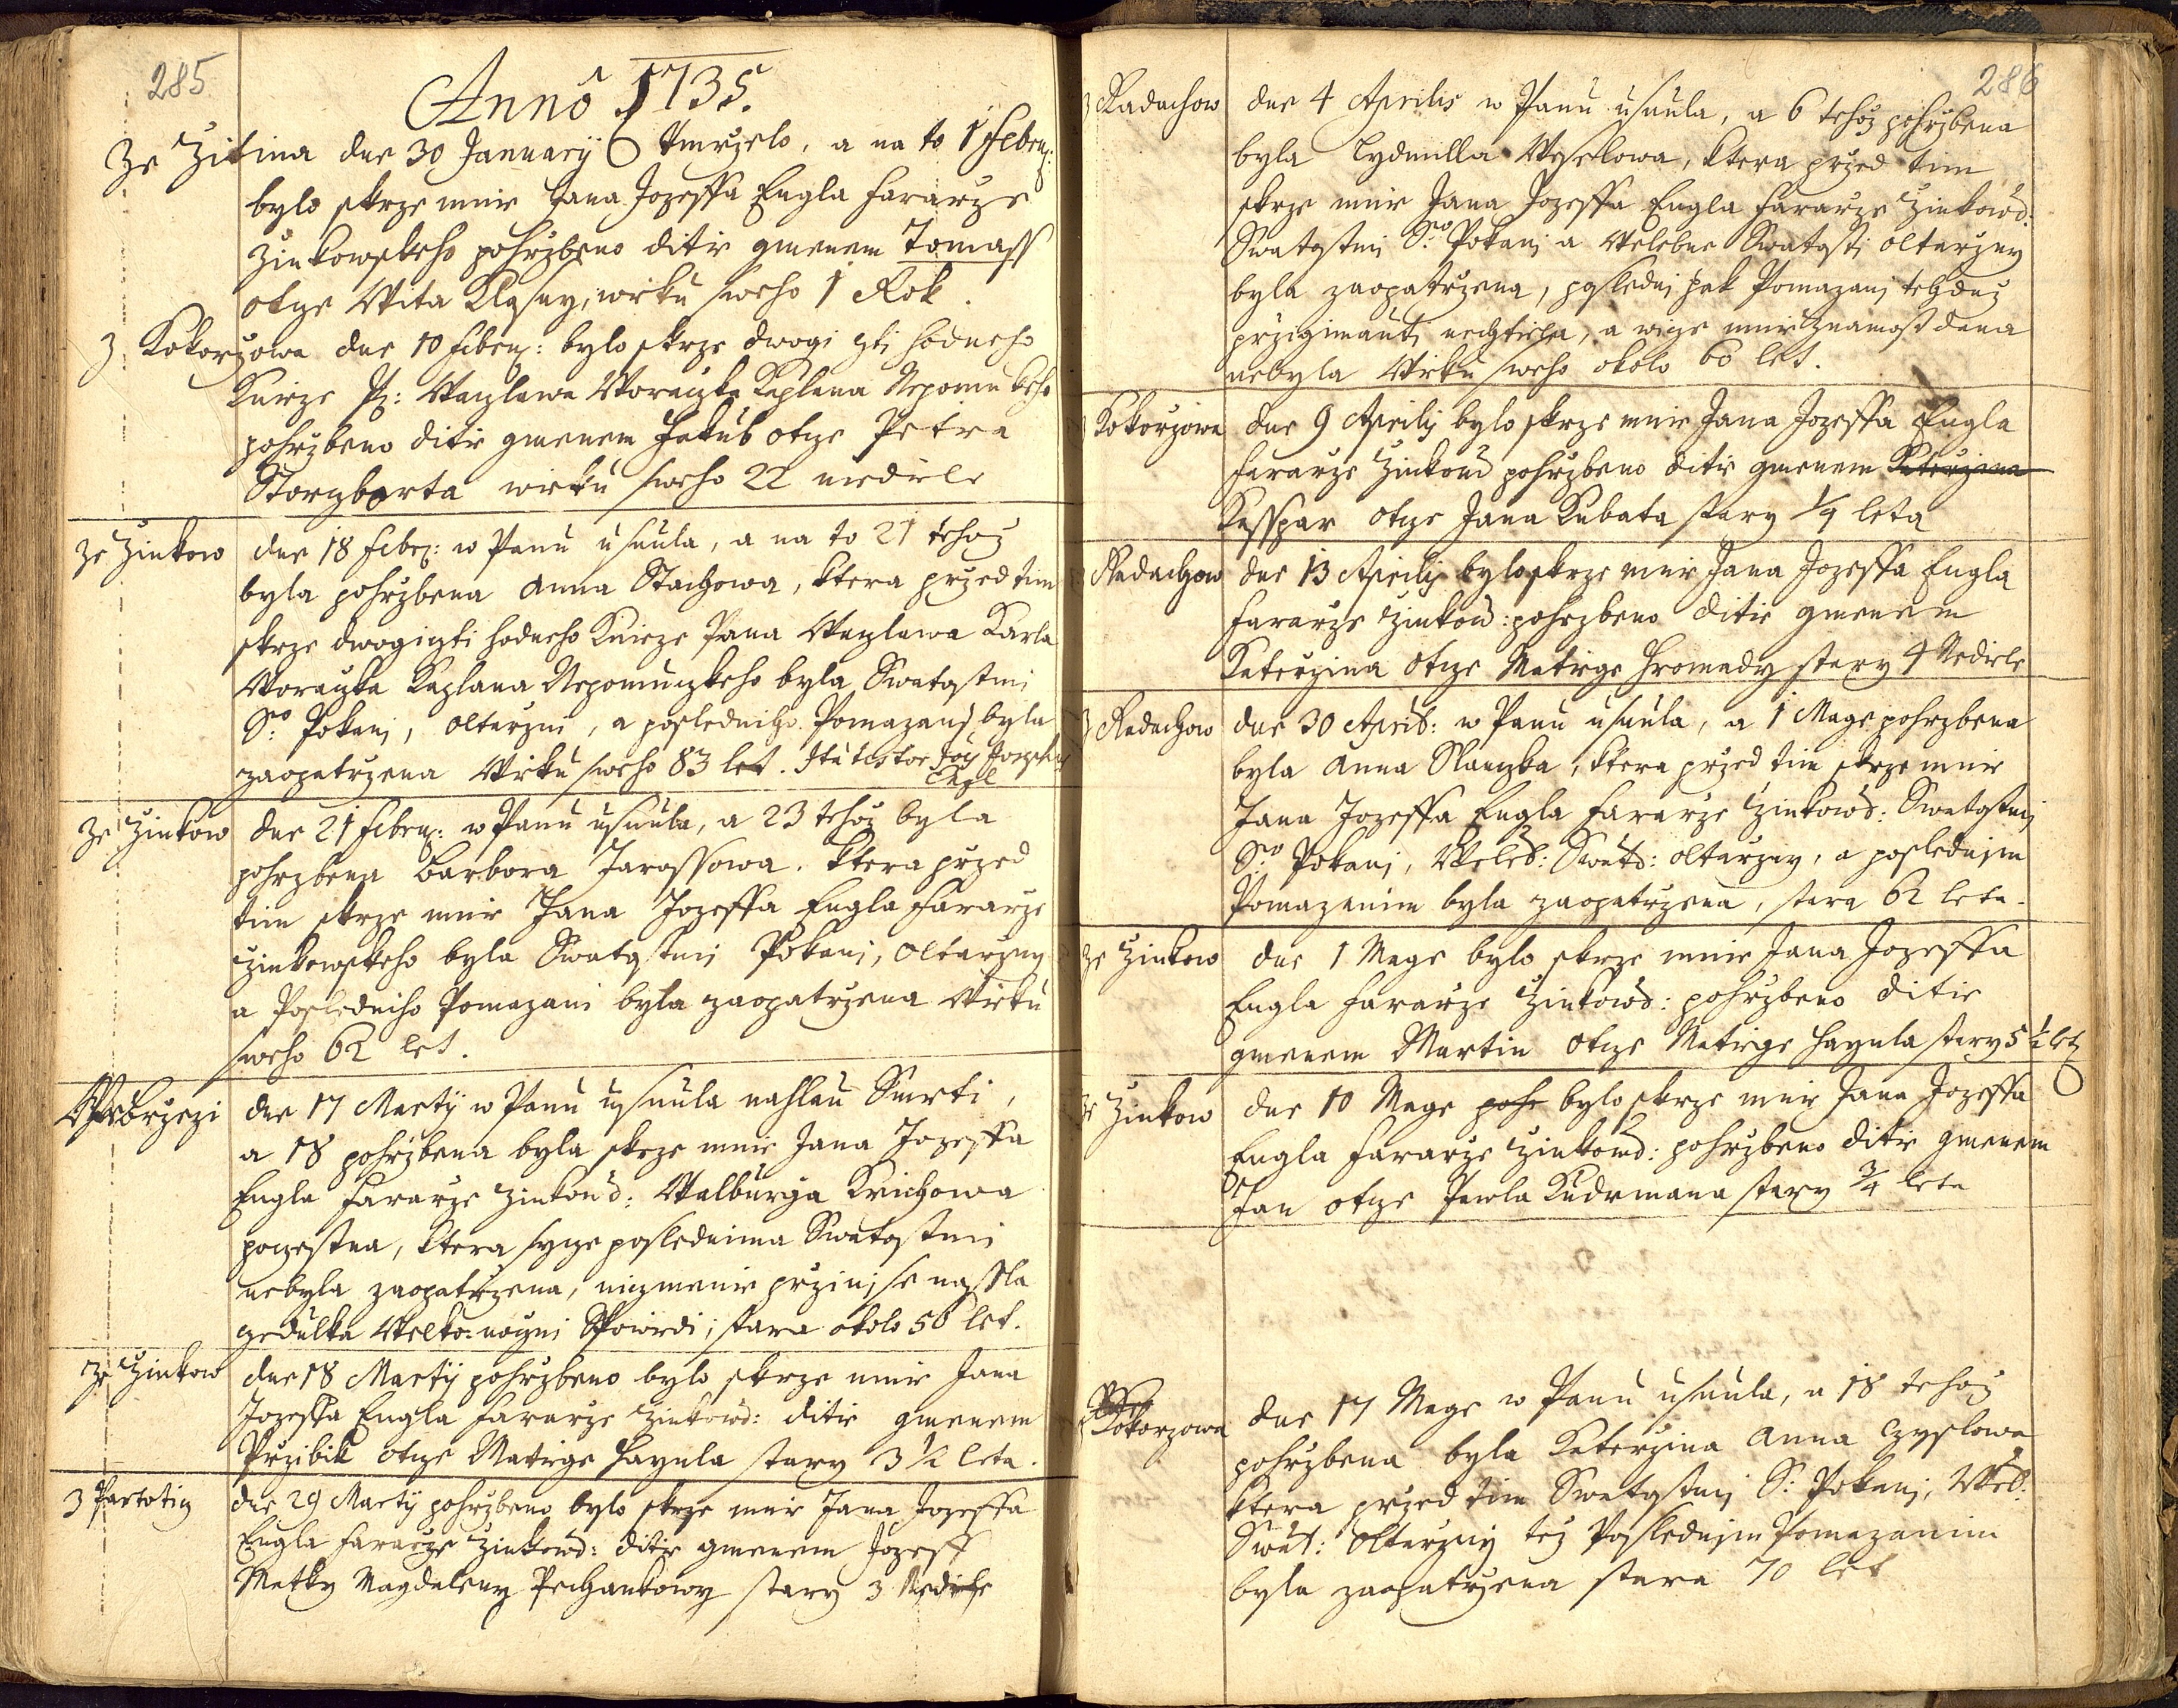 285
Anno 1735.
Ze Žitina dne 30 Januarij Umrzelo, a na to 1 Febru:
bylo skrze mnie Jana Jozeffa Engla Fararze
Žinkowskeho pohrzbeno ditie gmenem Tomass
otcze Wita Klasny, wieku sweho 1 Rok.
z Kokorzowa dne 10 Febru: bylo skrze dwogi cti hodneho
Knieze P: Waczlawa Woraczka Kaplana Nepomuckeho
pohrzbeno ditie gmenem Jakub otcze Petra
Storchbarta wieku sweho 22 niediele
ze Žinkow dne 18 Febr: w Panu usnula, a na to 21 tehož
byla pohrzbena Anna Stachowa, ktera przed tim
skrze dwogicti hodneho Knieze Pana Waczlawa Karla
Woraczka Kaplana Nepomuczkeho byla Swatostmi
S:to Pokani, oltarzni, a posledniho Pomazani byla
zaopatrzena Wieku sweho 83 let. Ita testor Joës Josephus
Engl
ze Žinkow dne 21 Febru: w Panu usnula, a 23 tehož byla
pohrzbena Barbora Jarossowa. ktera przed
tim skrze mnie Jana Jozeffa Engla Fararze
Žinkowskeho byla Swatostmi Pokani, oltarzny
a Posledniho Pomazani byla zaopatrzena Wieku
sweho 62 let.
dne 17 Martij w Panu usnula nahlau Smrti,
a 18 pohržbena byla skrze mnie Jana Jozeffa
Engla Fararze Žinkowd: Walburga Krichowa
poczestna, ktera sycze poslednima Swatostmi
nebyla zaopatrzena, nicmenie przi ni se nassla
cedulka Welko-noczni Spowiedi; stara okolo 50 let.
ze Žinkow dne 18 Martij pohrzbeno bylo skrze mnie Jana
Jozeffa Engla Fararze Žinkowd: ditie gmenem
Przibik otcze Matiege Haynla stary 3 1/2 leta.
z Partoticz die 29 Martij pohrzbeno bylo skrze mnie Jana Jozeffa
Engla Fararze Žinkowd: ditie gmenem Jozeff
Matky Magdaleny Pechankowy stary 3 Nediele
286
z Radachow dne 4 Aprilis w Panu usnula, a 6 tehož pohrzbena
byla Lydmilla Weselowa, ktera przed tim
skrze mnie Jana Jozeffa Engla Fararze Žinkowd:
Swatostmi S:to Pokani a Welebne Swatosti oltarzny
byla zaopatrzena, posledni pak Pomazani tehduž
przigimauti nechtiela, a wicze mnie znamost dana
nebyla Wieku sweho okolo 60 let.
z Kokorzowa dne 9 Aprilis bylo skrze mnie Jana Jozeffa Engla
Fararze Žinkowd pohržbeno ditie gmenem Katerzina
Kasspar otcze Jana Kubata stary 1/4 leta
z Radachow dne 13 Aprilis bylo skrze mnie Jana Jozeffa Engla
Fararze Žinkowd: pohrzbeno ditie gmenem
Katerzina otcze Matiege Hromady stary 4 Nediele
z Radachow dne 30 April: w Panu usnula, a 1 Mage pohrzbena
byla Anna Slanczka, ktera przed tim skrze mnie
Jana Jozeffa Engla Fararze Žinkowd: Swatostmi
S:to Pokani, Weleb: Swats: oltarzny, a poslednjm
Pomazanim byla zaopatrzena, stara 62 leta.
ze Žinkow dne 1 Mage bylo skrze mnie Jana Jozeffa
Engla Fararze Žinkowd: pohržbeno ditie
gmenem Martin otcze Matiege Haynla stary 5 1/2 let
ze Žinkow dne 10 Mage pohr bylo skrze mnie Jana Jozeffa
Engla Fararze Žinkowd: pohržbeno ditie gmenem
Jan otcze Pawla Kudrmana stary 3/4 leta
z Kokorzowa dne 17 Mage w Panu usnula, a 18 tehož
pohrzbena byla Katerzina Anna Czyslowa
ktera przed tim Swatostmi S: Pokani, Web:
Swat: Oltarzny tez Poslednjm Pomazanim
byla zaopatrzena stara 70 let